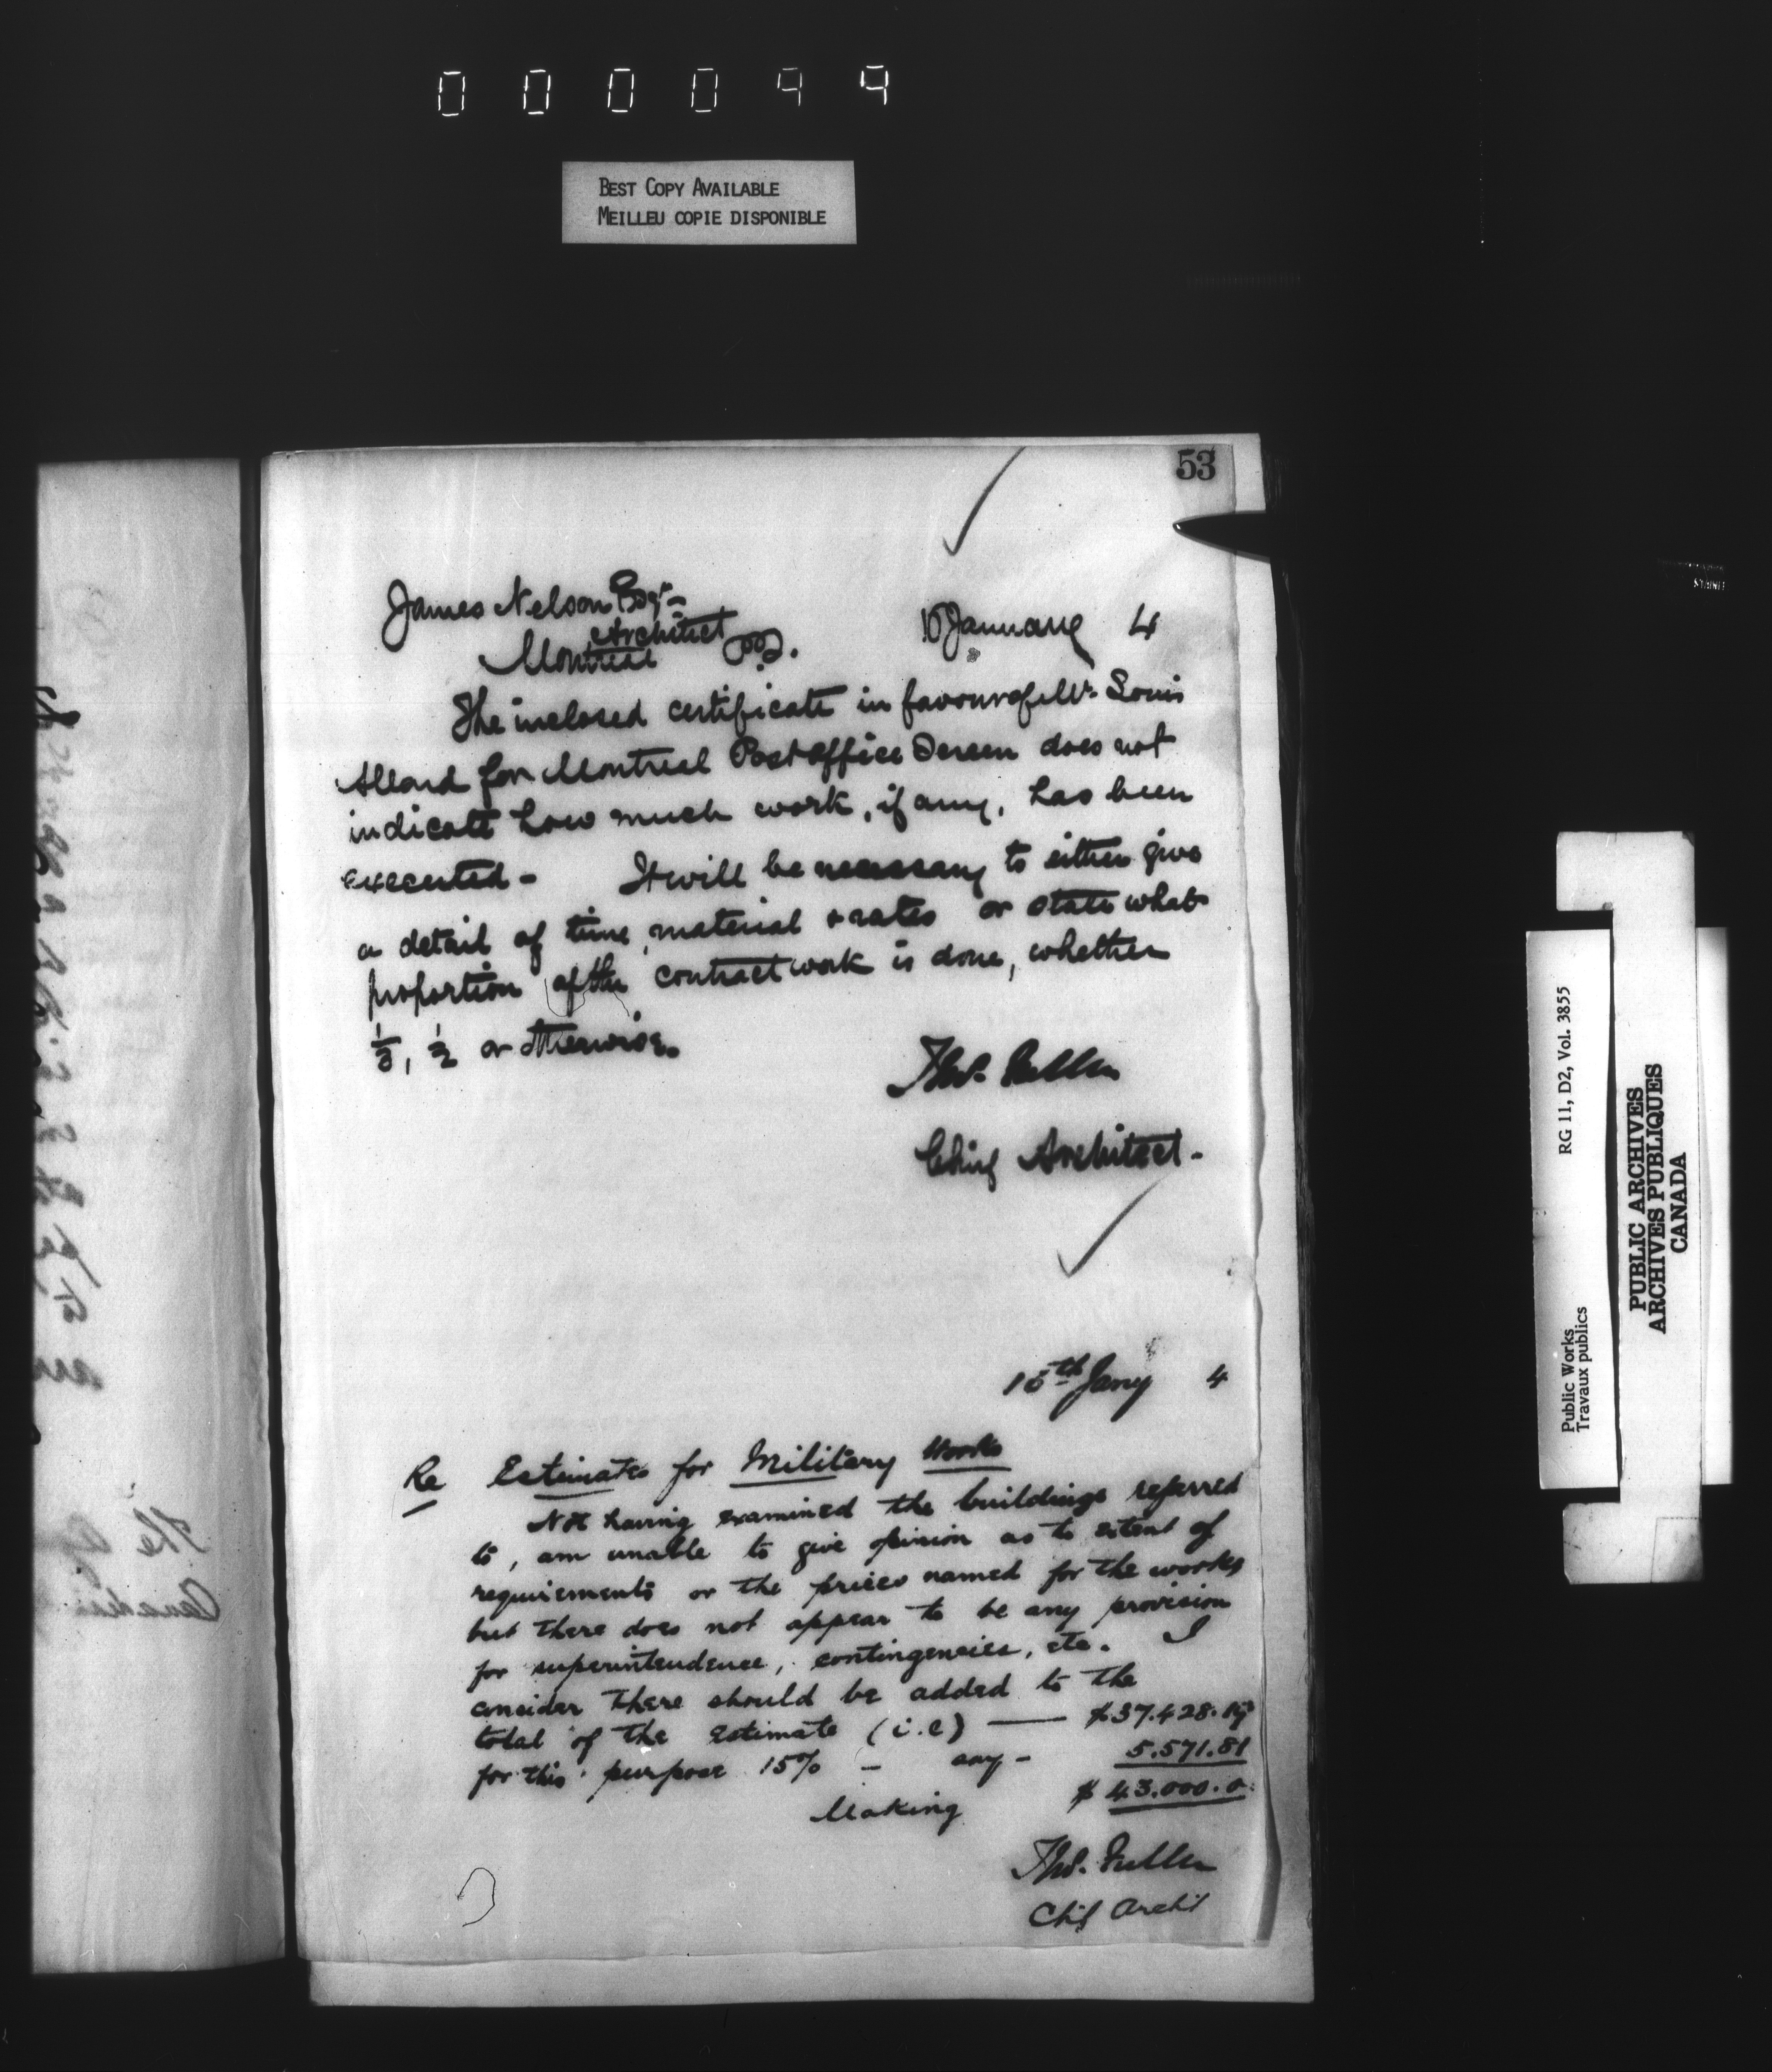 000099
BEST COPY AVAILABLE
MEILLEU COPIE DISPONIBLE
53
James Nelson Esqr
Architect
Montreal P.Q.
15 January 4
The inclosed certificate in favour of Mr Louis
Allard for Montreal Post Office Screen does not
indicate how much work, if any, has been
executed - It will be necessary to either give
a detail of time, material & rates or state what
proportion of the contract work is done, whether
1/3, 1/2 or otherwise.
Thos. Fuller
Chief Architect.
15th Jany 4
Re Estimates for Military Works
Not having examined the buildings referred
to, am unable to give opinion as to extent of
requirements or the prices named for the works
but there does not appear to be any provision
for superintendence, contingencies, etc. I
consider there should be added to the
total of the estimate (i.e) — $37.428.19
for this purpose 15% - say - 5.571.81
Making $43.000.0
Thos. Fuller
Chf Archt
The
Canadi
Public Works
Travaux publics
RG 11, D2, Vol. 3855
PUBLIC ARCHIVES
ARCHIVES PUBLIQUES
CANADA